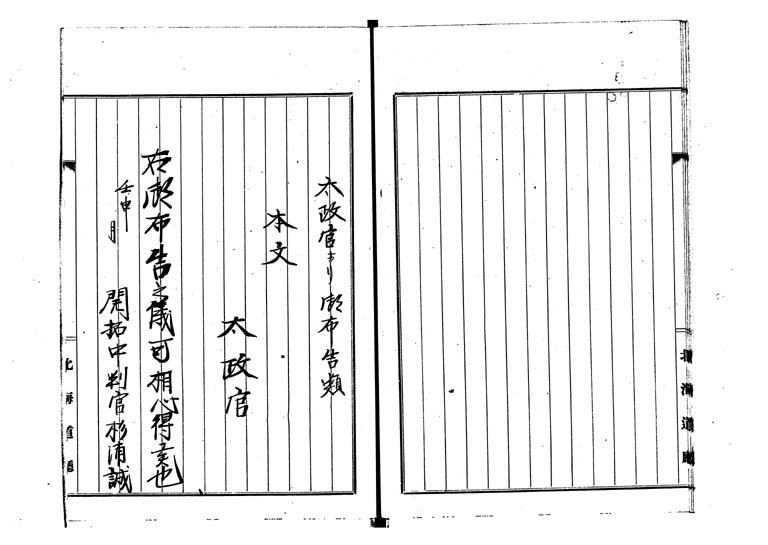 北海道廳
太政官ヨリ御布告類
本文
太政官
右御布告之儀可相心得者也
壬申 月
開拓中判官杉浦誠
北海道廳